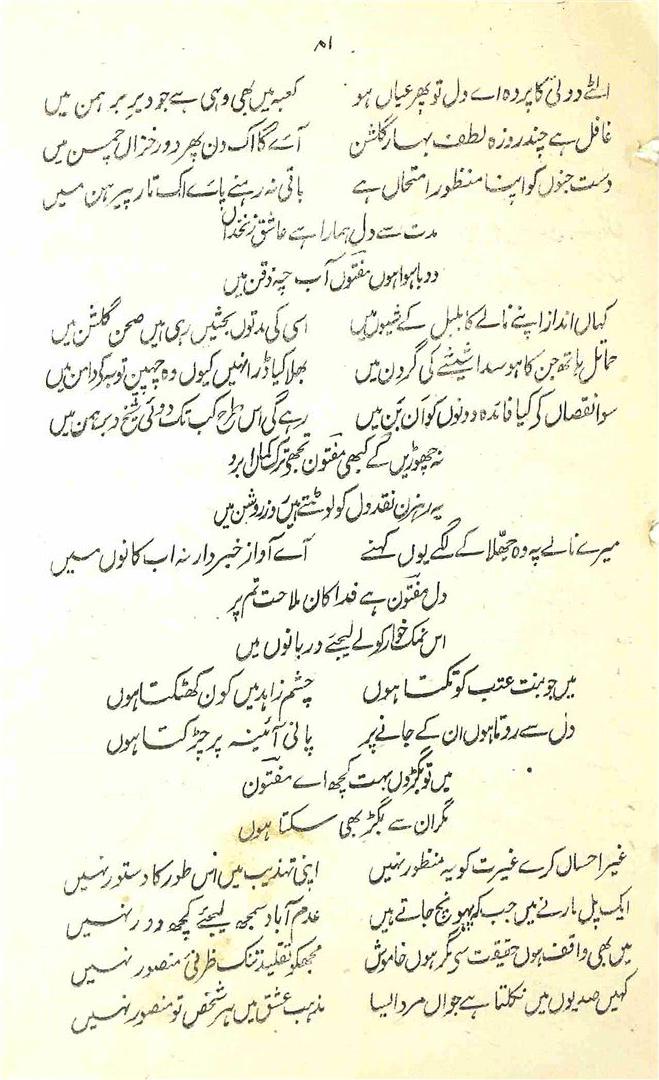 ۵۱
الٹے دوئی کا پردہ اے دل تو پھر عیاں ہو کعبہ میں بھی وہی ہے جو دیرِ برہمن میں
غافل ہے چند روزہ لطف بہار گلشن آئے گا اک دن پھر دور خزاں چمن میں
دست جنوں کو اپنا منظور امتحاں ہے باقی نہ رہنے پائے اک تار پیرہن میں
مدت سے دل ہمارا ہے عاشق زنخداں
ڈوبا ہوا ہوں مفتوں آب چہ ذقن میں
کہاں انداز اپنے نالے کا بلبل کے شیون میں اسی کی مدتوں بحثیں رہی ہیں صحن گلشن میں
حمائل ہاتھ جن کا ہو سدا شیشے کی گردن میں بھلا کیا ڈر انہیں کیوں وہ چھپیں توبہ کے دامن میں
سوا نقصاں کے کیا فائدہ دونوں کو اَن بَن میں رہے گی اس طرح کب تک دوئی شیخ و برہمن میں
نہ چھوڑیں گے کبھی مفتوں تجھے ترک کماں ابرو
یہ رہزن نقد دل کو لوٹتے ہیں روز روشن میں
میرے نالے پہ وہ جھلا کے لگے یوں کہنے آئے آواز خبردار نہ اب کانوں میں
دل مفتوں ہے فدا کان ملاحت تم پر
اس نمک خوار کو لے لیجئے دربانوں میں
میں جو بنت عنب کو تکتا ہوں چشم زاہد میں کون کھٹکتا ہوں
دل سے روتا ہوں ان کے جانے پر پانی آئینہ پر چڑکتا ہوں
میں تو بگڑوں بہت کچھ اے مفتوں
مگر ان سے بگڑ بھی سکتا ہوں
غیر احساں کرے غیرت کو یہ منظور نہیں اپنی تہذیب میں اس طور کا دستور نہیں
ایک پل مارنے میں جب کہ پہونچ جاتے ہیں عدم آباد سمجھ لیجئے کچھ دور نہیں
میں بھی واقف ہوں حقیقت سی مگر ہوں خاموش مجھکو تقلید تنک ظرفیٔ منصور نہیں
کہیں صدیوں میں نکلتا ہے جواں مرد ایسا مذہب عشق میں ہر شخص تو منصور نہیں